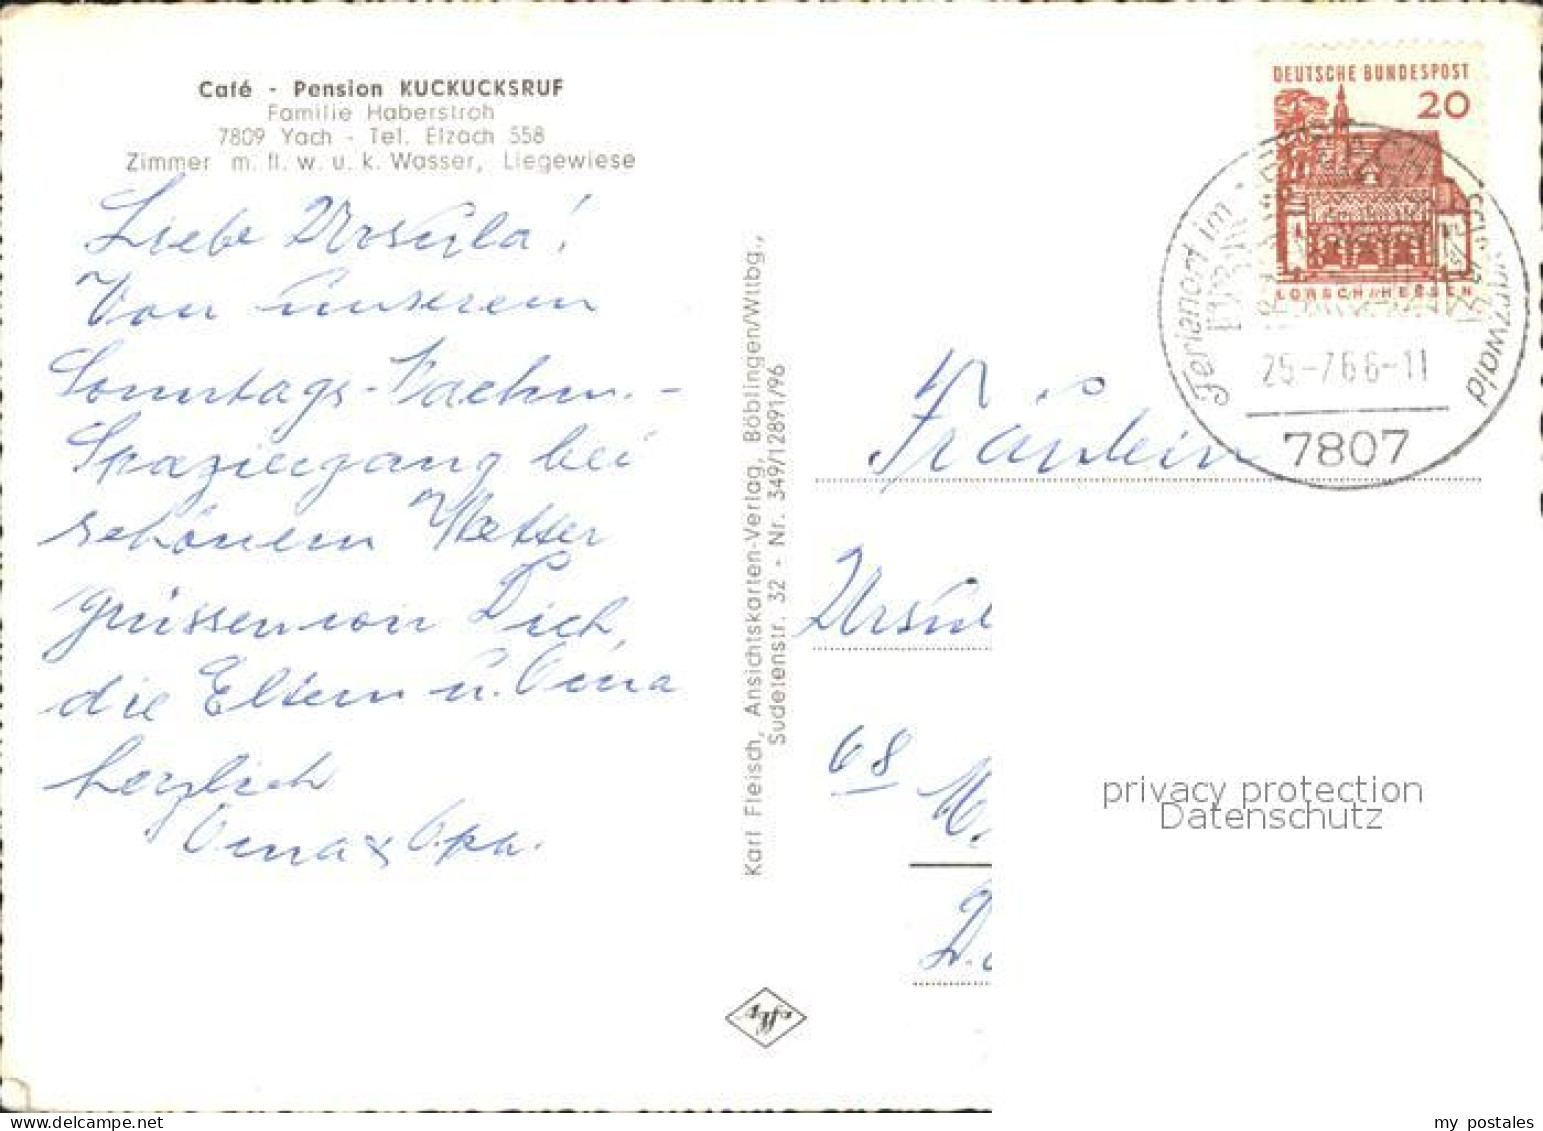 Café - Pension KUCKUCKSRUF
Familie Haberstroh
7809 Yach - Tel. Elzach 558
Zimmer m. fl. w. u. k. Wasser, Liegewiese
Liebe Ursula!
Von unserem
Sonntags-Nachm.-
Spaziergang bei
schönem Wetter
grüssen wir Dich,
die Eltern u. Oma
herzlich
Oma & Opa.
Karl Fleisch, Ansichtskarten-Verlag, Böblingen/Wttbg.,
Sudetenstr. 32 - Nr. 349/12891/96
DEUTSCHE BUNDESPOST
20
LORSCH/HESSEN
Ferienort im Schwarzwald
25.-7.66-11
7807
Fräulein
Ursul
68 M
privacy protection
Datenschutz
my postales